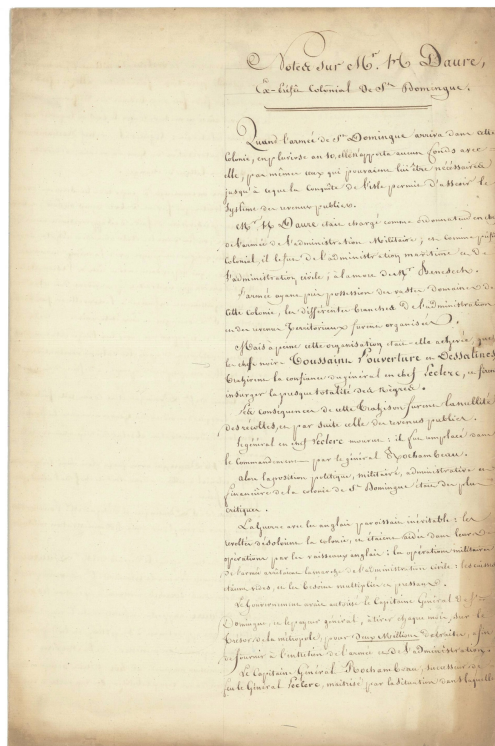 Notes sur Mr. H Daure,
Ex-Préfet Colonial de St. Domingue.
Quand l'armée de St. Domingue arriva dans cette
Colonie, en pluviose an 10, elle n'apporta aucun fonds avec
elle, pas même ceux qui pouvaient lui être nécessaires
jusqu'à ce que la Conquête de l'isle permit d'asseoir le
système des revenus publics.
Mr. H Daure était chargé comme ordonnateur en chef
de l'armée de l'administration Militaire; et comme préfet
Colonial, il le fut de l'administration maritime et de
l'administration civile, à la mort de Mr. Benezech.
L'armée ayant pris possession des vastes domaines de
cette Colonie, les différentes branches de l'administration
et des revenus territoriaux furent organisées.
Mais à peine cette organisation était-elle achevée, que
les chefs noirs Toussaint Louverture et Dessalines
trahirent la confiance du général en chef Leclerc, et firent
insurger la presque totalité des Nègres.
Les conséquences de cette trahison furent la nullité
des récoltes, et par suite celle des revenus publics.
Le général en chef Leclerc mourut: il fut remplacé dans
le Commandement par le général Rochambeau.
Alors la position politique, militaire, administrative et
financière de la colonie de St. Domingue était des plus
critiques.
La Guerre avec les anglais paraissait inévitable: les
révoltés désolaient la colonie, et étaient aidés dans leurs
opérations par les vaisseaux anglais: les opérations militaires
de l'armée la marche de l'administration Civile: les caisses
étaient vides, et les besoins multipliés et pressans.
Le Gouvernement avait autorisé le Capitaine Général de St.
Domingue, et le payeur général, à tirer chaque mois, sur le
trésor de la métropole, pour deux Millions de traites, afin
de fournir à l'entretien de l'armée et de l'administration.
Le Capitaine Général Rochambeau, successeur de
feu le Général Leclerc, maitrisé par la situation dans laquelle